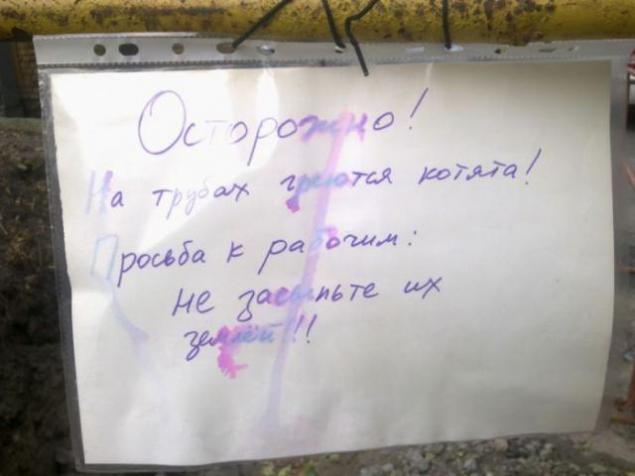 Осторожно!
На трубах греются котята!
Просьба к рабочим:
не засыпьте их
землёй!!!